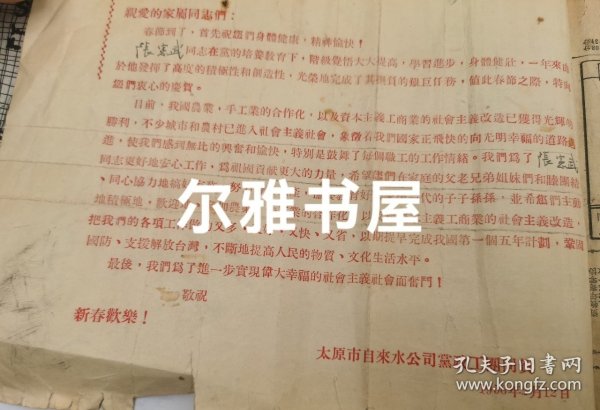 親爱的家屬同志們：
春節到了，首先祝您們身體健康，精神愉快！
張宏武同志在黨的培養教育下，階級覺悟大大提高，學習進步，身體健壯，一年來由
於他發揮了高度的積極性和創造性，光榮地完成了其担負的艱巨任務，值此春節之際，特向
您們衷心的慶賀。
目前，我國農業，手工業的合作化，以及資本主義工商業的社會主義改造已獲得光輝的
勝利，不少城市和農村已進入社會主義社會，象徵着我們國家正飛快的向光明幸福的道路邁
進，使我們感到無比的興奮和愉快，特別是鼓舞了每個職工的工作情緒。我們爲了張宏武
同志更好地安心工作，爲祖國貢献更大的力量，希望您們在家的父老兄弟姐妹們和睦團結
、同心協力地搞好 代的子子孫孫，並希您們主動
地積極地，歡迎 主義工商業的社會主義改造，
把我們的各項工作 又多、 又快、又省，以期提早完成我國第一個五年計劃，鞏固
國防、支援解放台灣，不斷地提高人民的物質、文化生活水平。
最後，我們爲了進一步實現偉大幸福的社會主義社會而奮鬥！
敬祝
新春歡樂！
太原市自來水公司黨
月12日
尔雅书屋
孔夫子旧书网
www.kongfz.com